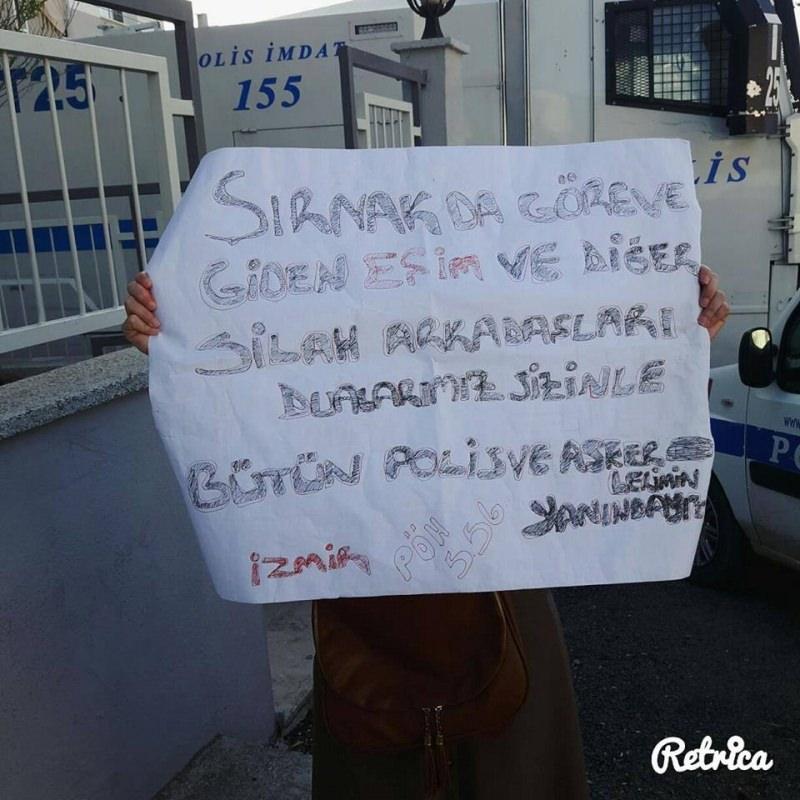 T25
OLİS İMDAT
155
LİS
25
ŞIRNAK DA GÖREVE
GİDEN EŞİM VE DİĞER
SİLAH ARKADAŞLARI
DUALARIMIZ SİZİNLE
BÜTÜN POLİS VE ASKER
LERİMİN
YANINDAYIZ
İZMİR PÖH 5.56
www.
PO
Retrica